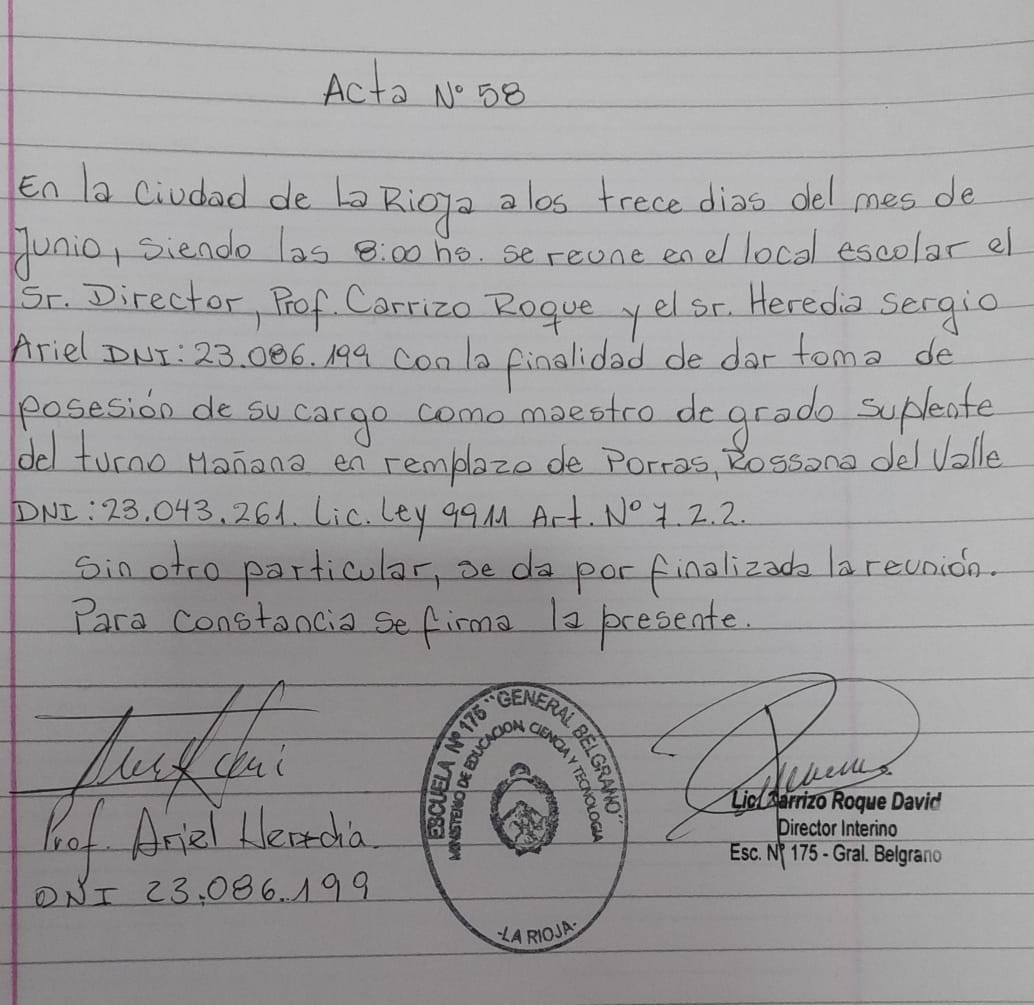 Acta N° 58
En la Ciudad de La Rioja a los trece dias del mes de
Junio, siendo las 8:00 hs. se reune en el local escolar el
Sr. Director, Prof. Carrizo Roque y el sr. Heredia Sergio
Ariel DNI: 23.086.199 con la finalidad de dar toma de
posesión de su cargo como maestro de grado suplente
del turno Mañana en remplazo de Porras, Rossana del Valle
DNI: 23.043.261. Lic. Ley 9911 Art. N° 7.2.2.
Sin otro particular, se da por finalizada la reunión.
Para constancia se firma la presente.
Prof. Ariel Heredia.
DNI 23.086.199
ESCUELA Nº 175 "GENERAL BELGRANO"
MINISTERIO DE EDUCACION CIENCIA Y TECNOLOGIA
-LA RIOJA-
Lic. Carrizo Roque David
Director Interino
Esc. Nº 175 - Gral. Belgrano